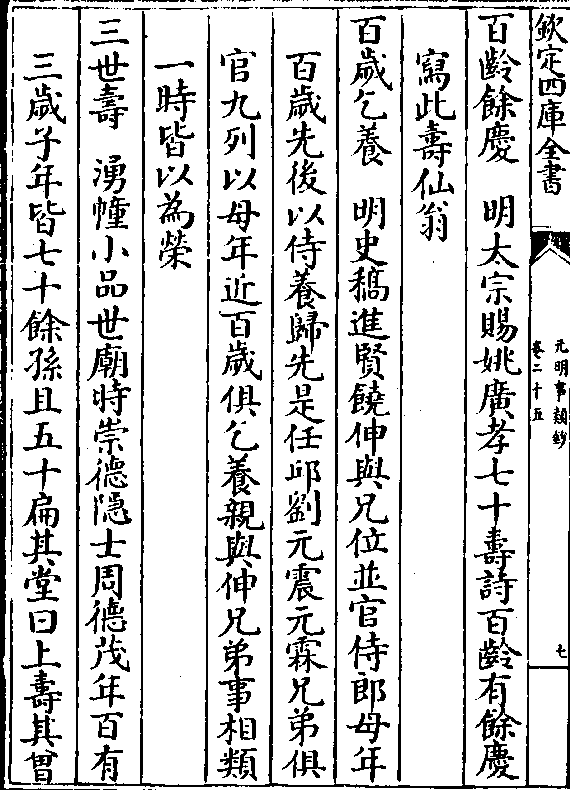 欽定四庫全書
元明事類鈔
卷二十五
七
百齡餘慶　明太宗賜姚廣孝七十壽詩百齡有餘慶
寫此壽仙翁
百歲乞養　明史稿進賢饒伸與兄位並官侍郎母年
百歲先後以侍養歸先是任邱劉元震元霖兄弟俱
官九列以母年近百歲俱乞養親與伸兄弟事相類
一時皆以為榮
三世壽　湧幢小品世廟時崇德隱士周德茂年百有
三歲子年皆七十餘孫且五十扁其堂曰上壽其曾